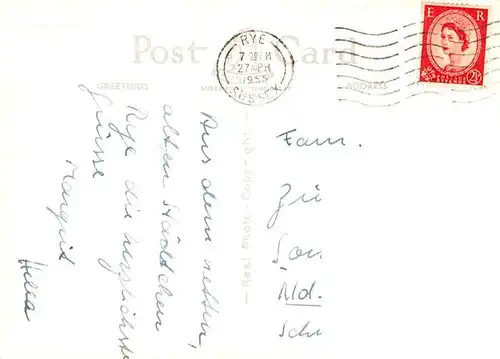 Post Card
GREETINGS
ADDRESS
RYE
27 AP
1955
SUSSEX
E R
2½
Real Photo Copyright
Aus dem netten,
alten Städtchen
Rye die herzlichste
Grüsse
Margrit
Hella
Fam.
Zü
Son
Nld.
Schr